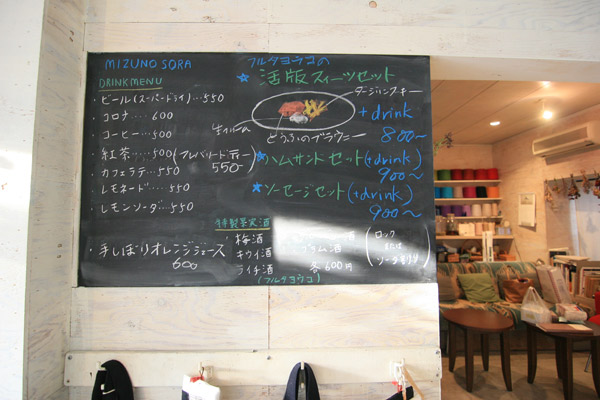 MIZUNO SORA
DRINK MENU
・ビール(スーパードライ)…550
・コロナ…600
・コーヒー…500
・紅茶…500(フレーバードティー)
550-
・カフェラテ…550
・レモネード…550
・レモンソーダ…550
・手しぼりオレンジジュース
600
フルタヨウコの
★活版スイーツセット
ダージリンクッキー
生クリーム
とうふのブラウニー
+drink
800~
★ハムサンドセット(+drink)
900~
★ソーセージセット(+drink)
900~
特製果実酒
梅酒
キウイ酒
ライチ酒
各600円
(フルタヨウコ)
(ロック
または
ソーダ割り)